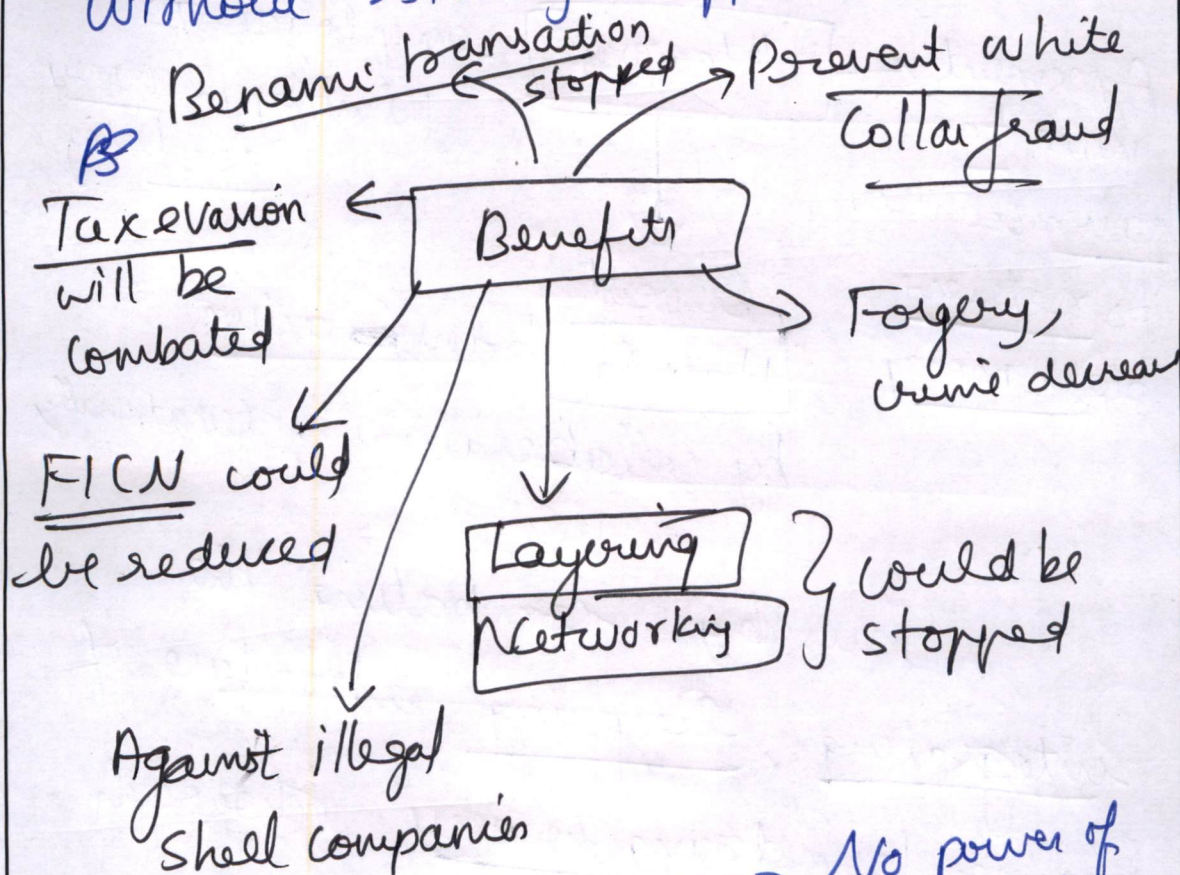 Benami transaction
stopped
Prevent white
Collar fraud
Tax evasion
will be
combated
Benefits
Forgery,
crime decreas
FICN could
be reduced
Layering
Networking
could be
stopped
Against illegal
shell companies
No power of